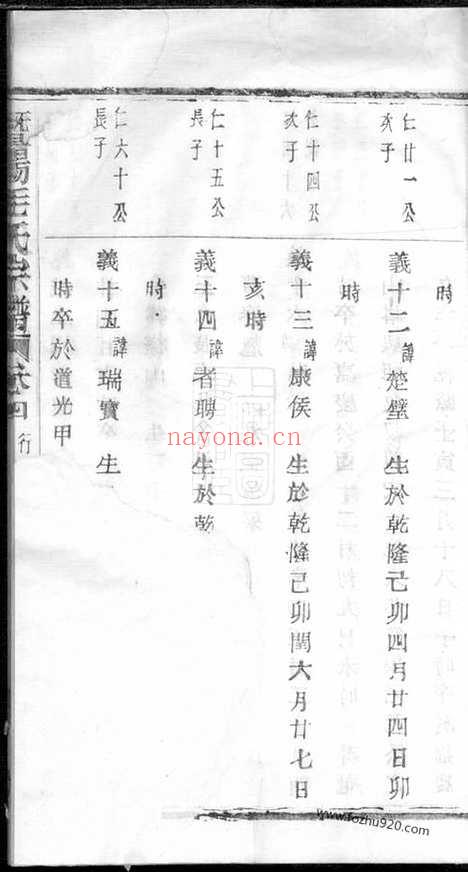 時
仁廿一公
次子
義十二諱楚璧 生於乾隆己卯四月廿四日卯
時
仁十四公
次子
義十三諱康侯 生於乾隆己卯閏六月廿七日
亥時
仁十五公
長子
義十四諱者聘 生於乾
時
仁六十公
長子
義十五諱瑞寶 生
時卒於道光甲
暨陽毛氏宗譜 卷十四 行
nayona.cn
www.fozhu920.com